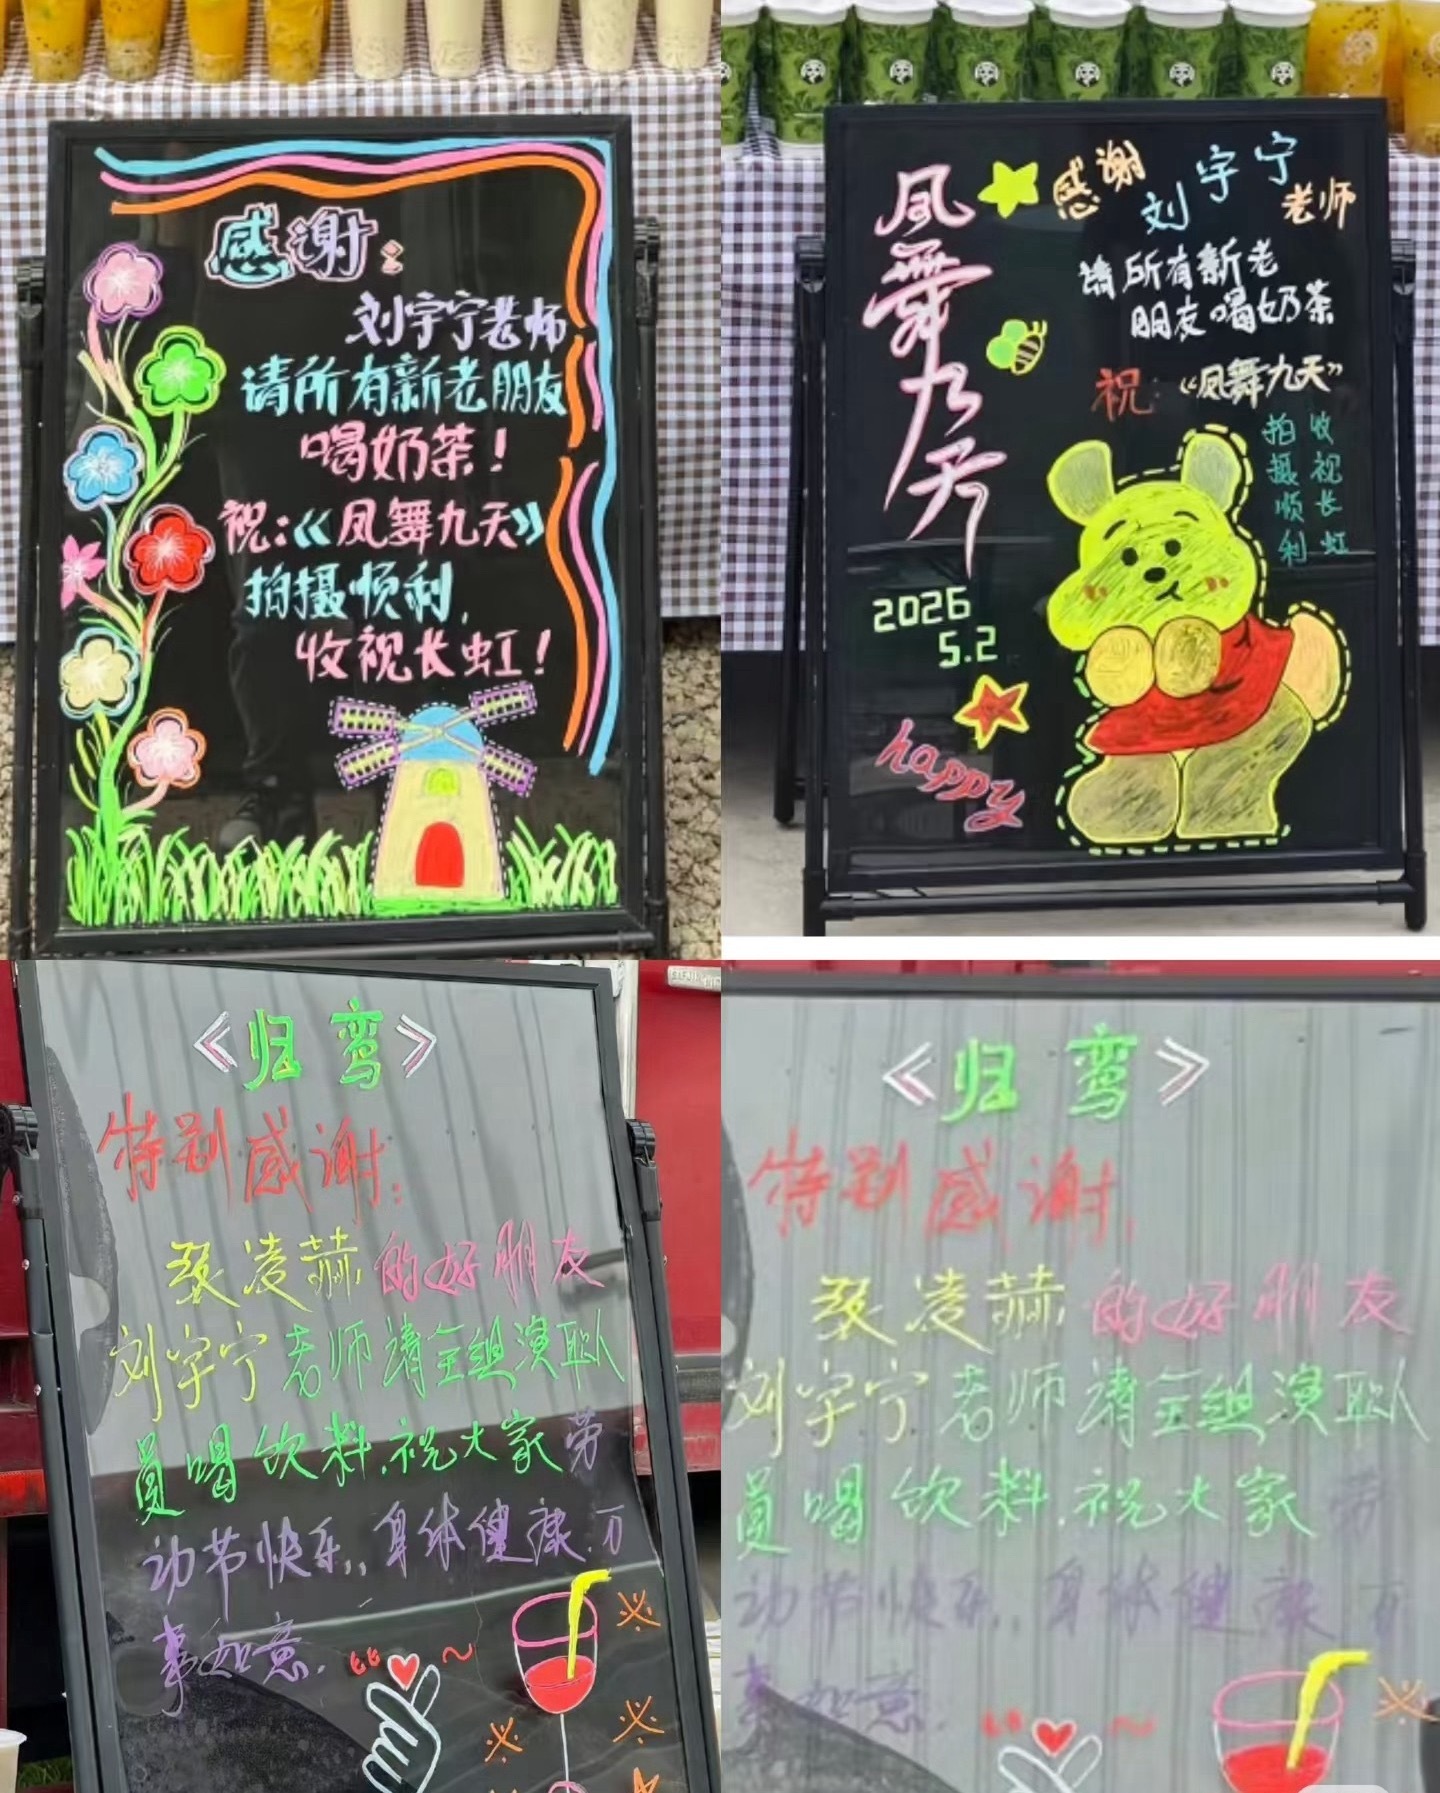 感谢：
刘宇宁老师
请所有新老朋友
喝奶茶！
祝：《凤舞九天》
拍摄顺利，
收视长虹！
凤舞九天
感谢
刘宇宁
老师
请所有新老
朋友喝奶茶
祝：“凤舞九天”
拍摄顺利
收视长虹
2026
5.2
happy
《归鸾》
特别感谢：
张凌赫的好朋友
刘宇宁老师请全组演职人
员喝饮料.祝大家劳
动节快乐,,身体健康.万
事如意.
《归鸾》
特别感谢,
张凌赫的好朋友
刘宇宁老师请全组演职人
员喝饮料.祝大家劳
动节快乐,,身体健康.万
事如意